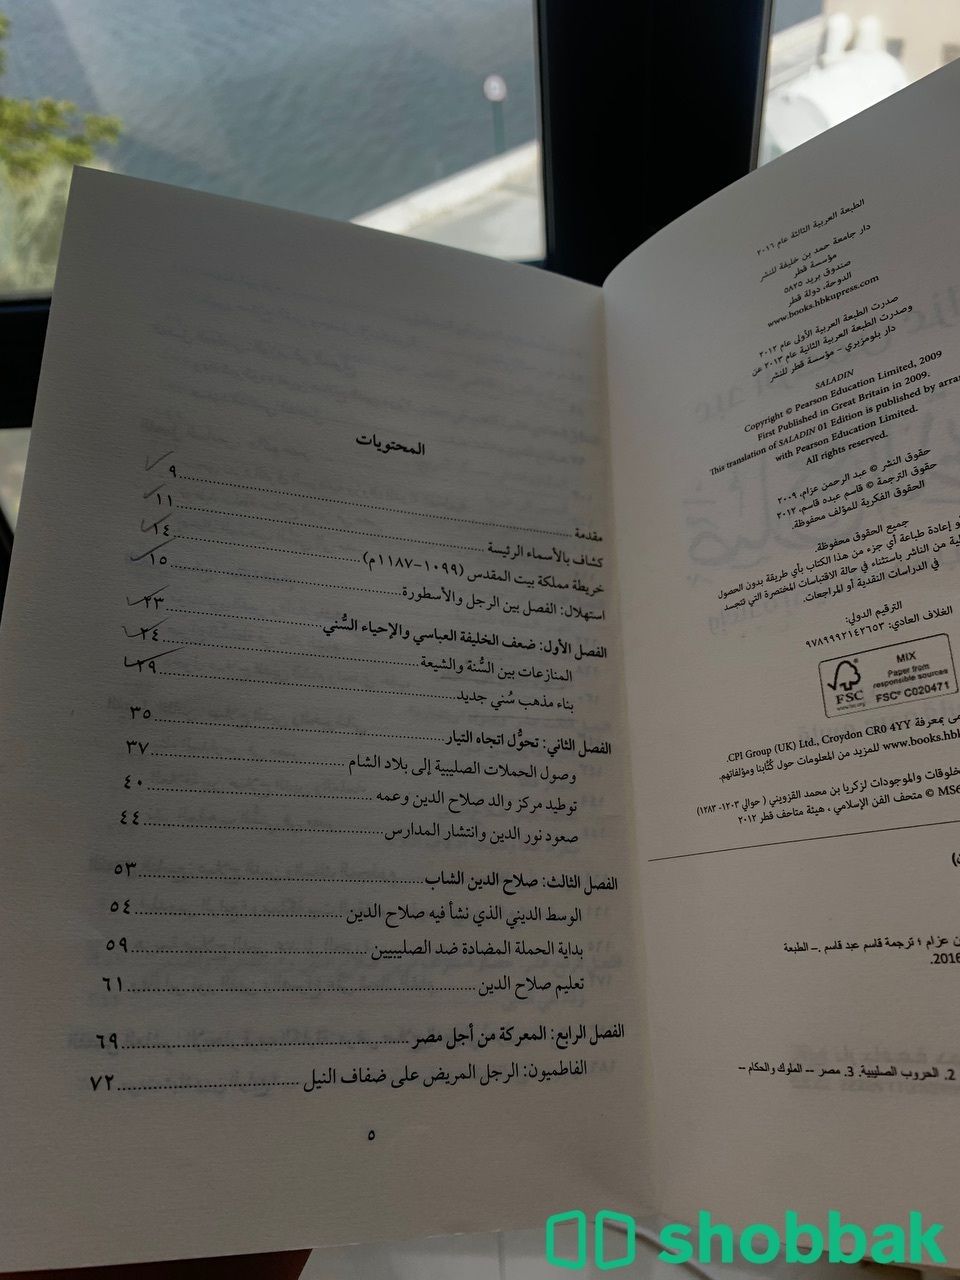 الطبعة العربية الثالثة عام ٢٠١٦
دار جامعة حمد بن خليفة للنشر
مؤسسة قطر
صندوق بريد ٥٨٢٥
الدوحة، دولة قطر
www.books.hbkupress.com
صدرت الطبعة العربية الأولى عام ٢٠١٢
وصدرت الطبعة العربية الثانية عام ٢٠١٣ عن
دار بلومزبري – مؤسسة قطر للنشر
SALADIN
Copyright © Pearson Education Limited, 2009
First Published in Great Britain in 2009.
This translation of SALADIN 01 Edition is published by
with Pearson Education Limited.
All rights reserved.
حقوق النشر © عبد الرحمن عزام، ٢٠٠٩
حقوق الترجمة © قاسم عبده قاسم، ٢٠١٢
الحقوق الفكرية للمؤلف محفوظة.
جميع الحقوق محفوظة.
أو إعادة طباعة أي جزء من هذا الكتاب بأي طريقة بدون الحصول
من الناشر باستثناء في حالة الاقتباسات المختصرة التي تتجسد
في الدراسات النقدية أو المراجعات.
الترقيم الدولي:
الغلاف العادي: ٩٧٨٩٩٩٢١٤٢٦٥٣
FSC
www.fsc.org
MIX
Paper from
responsible sources
FSC® C020471
بمعرفة CPI Group (UK) Ltd., Croydon CR0 4YY.
للمزيد من المعلومات حول كُتَّابنا ومؤلفاتهم. www.books.hbk
المخلوقات والموجودات لزكريا بن محمد القزويني ( حوالي ١٢٠٣- ١٢٨٣)
© متحف الفن الإسلامي ، هيئة متاحف قطر ٢٠١٢
عزام ؛ ترجمة قاسم عبد قاسم .– الطبعة
2016.
2. الحروب الصليبية. 3. مصر -- الملوك والحكام –
المحتويات
مقدمة ٩
كشاف بالأسماء الرئيسة ١١
خريطة مملكة بيت المقدس (١٠٩٩-١١٨٧م) ١٤
استهلال: الفصل بين الرجل والأسطورة ١٥
الفصل الأول: ضعف الخليفة العباسي والإحياء السُّني ٢٣
المنازعات بين السُّنة والشيعة ٢٤
بناء مذهب سُني جديد ٢٩
الفصل الثاني: تحوُّل اتجاه التيار ٣٥
وصول الحملات الصليبية إلى بلاد الشام ٣٧
توطيد مركز والد صلاح الدين وعمه ٤٠
صعود نور الدين وانتشار المدارس ٤٤
الفصل الثالث: صلاح الدين الشاب ٥٣
الوسط الديني الذي نشأ فيه صلاح الدين ٥٤
بداية الحملة المضادة ضد الصليبيين ٥٩
تعليم صلاح الدين ٦١
الفصل الرابع: المعركة من أجل مصر ٦٩
الفاطميون: الرجل المريض على ضفاف النيل ٧٢
٥
shobbak